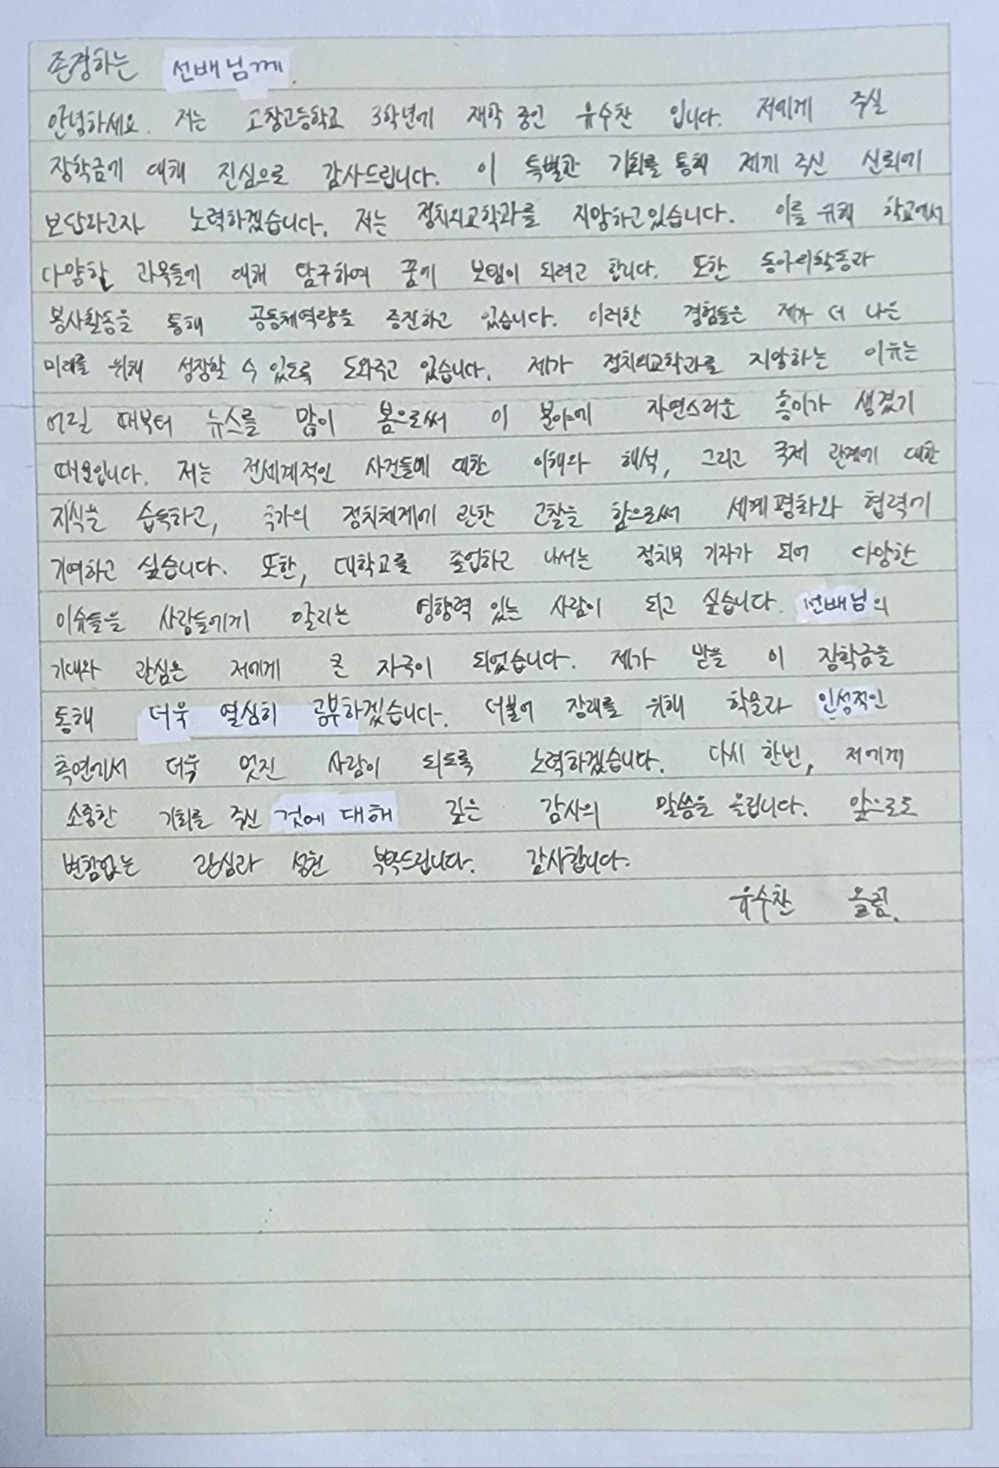 존경하는 선배님께.
안녕하세요. 저는 고창고등학교 3학년에 재학 중인 유수찬 입니다. 저에게 주실
장학금에 대해 진심으로 감사드립니다. 이 특별한 기회를 통해 제게 주신 신뢰에
보답하고자 노력하겠습니다. 저는 정치외교학과를 지망하고있습니다. 이를 위해 학교에서
다양한 과목들에 대해 탐구하여 꿈에 보탬이 되려고 합니다. 또한 동아리활동과
봉사활동을 통해 공동체역량을 증진하고 있습니다. 이러한 경험들은 제가 더 나은
미래를 위해 성장할 수 있도록 도와주고 있습니다. 제가 정치외교학과를 지망하는 이유는
어릴 때부터 뉴스를 많이 봄으로써 이 분야에 자연스러운 흥미가 생겼기
때문입니다. 저는 전세계적인 사건들에 대한 이해와 해석, 그리고 국제 관계에 대한
지식을 습득하고, 국가의 정치체계에 관한 고찰을 함으로써 세계평화와 협력에
기여하고 싶습니다. 또한, 대학교를 졸업하고 나서는 정치부 기자가 되어 다양한
이슈들을 사람들에게 알리는 영향력 있는 사람이 되고 싶습니다. 선배님의
기대와 관심은 저에게 큰 자극이 되었습니다. 제가 받을 이 장학금을
통해 더욱 열심히 공부하겠습니다. 더불어 장래를 위해 학율과 인성적인
측면에서 더욱 멋진 사람이 되도록 노력하겠습니다. 다시 한번, 저에게
소중한 기회를 주신 것에 대해 깊은 감사의 말씀을 올립니다. 앞으로도
변함없는 관심과 성원 부탁드립니다. 감사합니다.
유수찬 올림.